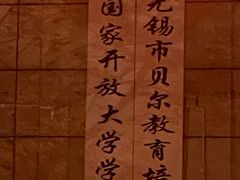 无锡市贝尔教育培
国家开放大学学